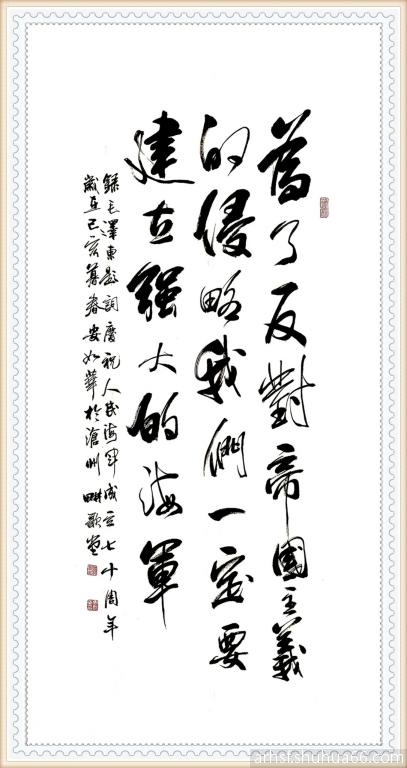 為了反對帝國主義
的侵略我們一定要
建立强大的海軍
錄毛澤東題詞慶祝人民海軍成立七十周年
歲在己亥暮春安如華於滄州畊歌堂
arhsf.shuhua66.com